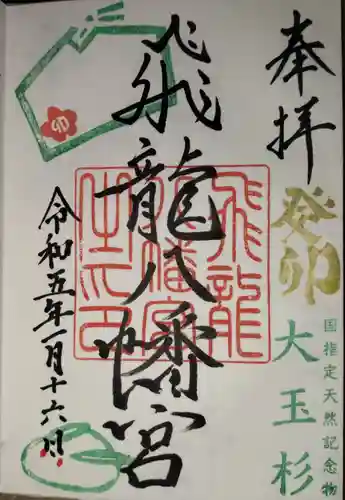 奉拝
癸卯
国指定天然記念物
大玉杉
飛龍八幡宮
飛龍八幡宮之印
卯
令和五年一月十六日